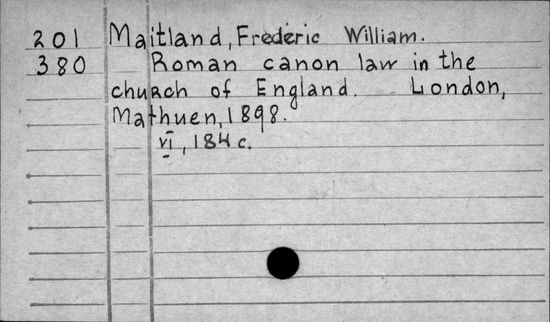 201 Maitland, Frederic William.
380 Roman canon law in the
church of England. London,
Mathuen, 1898.
vi, 184 c.